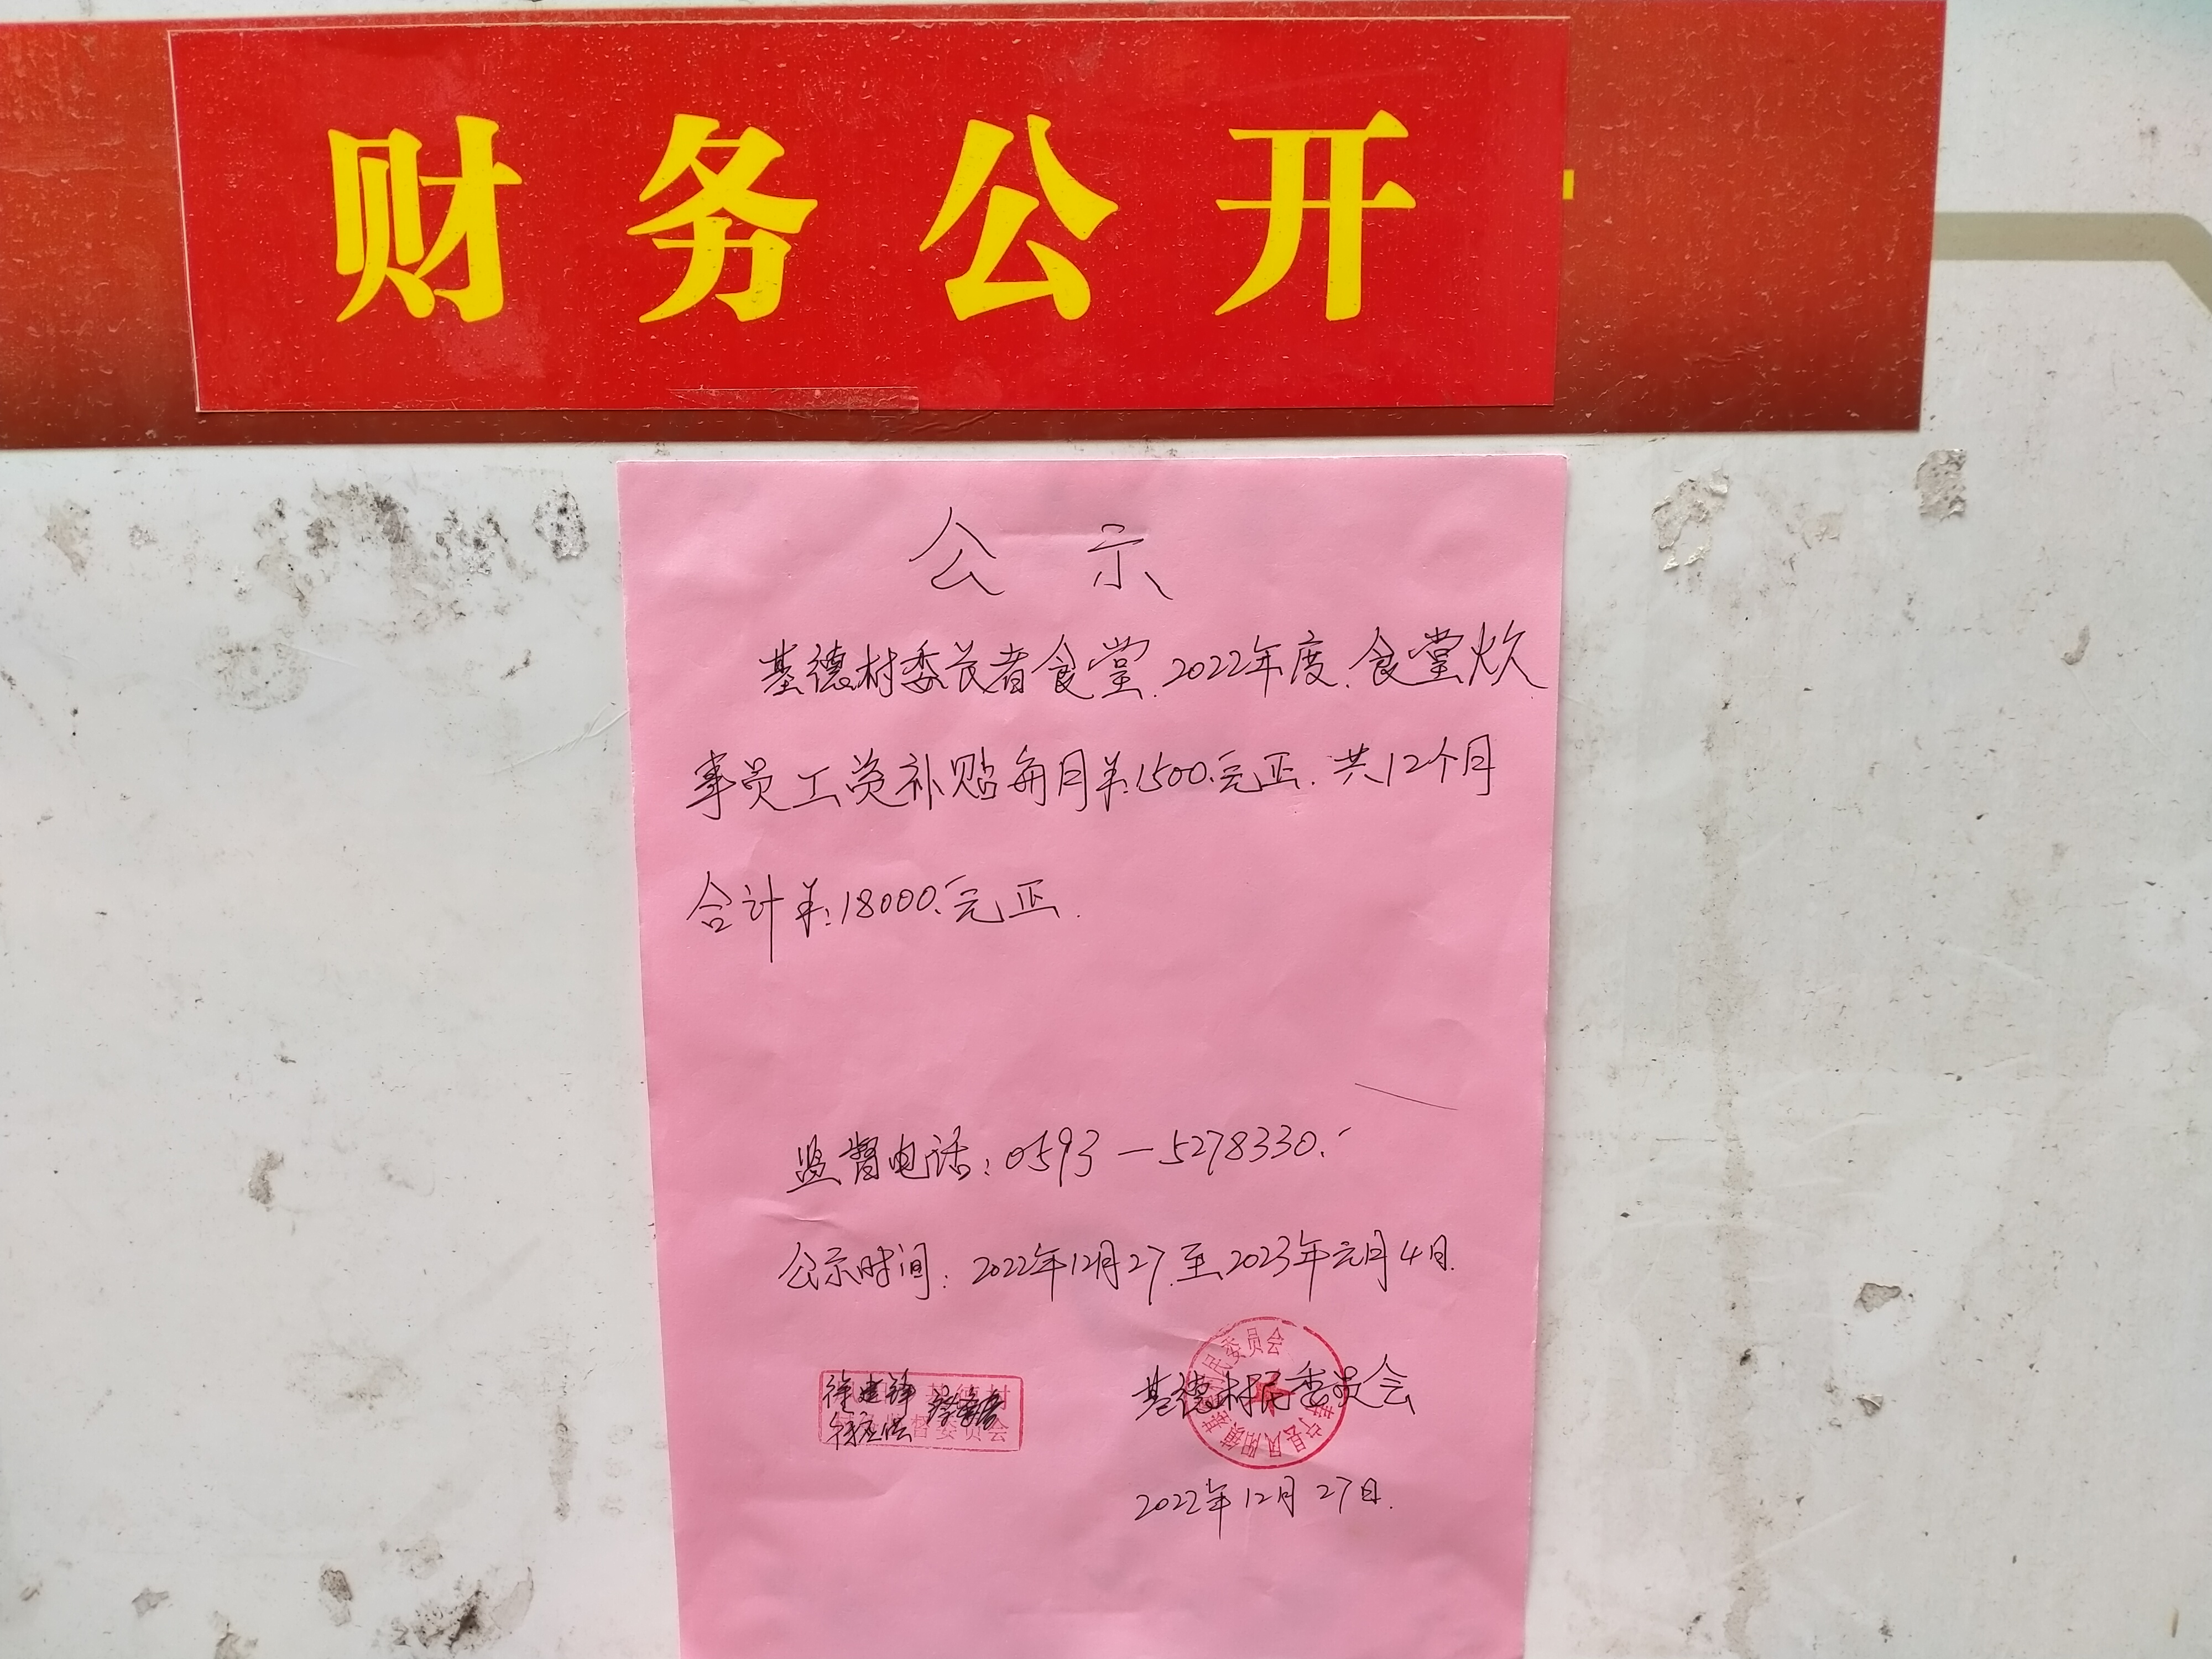 财务公开
公示
基德村委长者食堂.2022年度.食堂炊
事员工资补贴每月¥:1500.元正.共12个月
合计¥:18000.元正.
监督电话:0593-5278330.
公示时间:2022年12月27.至2023年元月4日.
基德村
督委员会
基德村民委员会
寿宁县凤阳镇基德村民委员会
2022年12月27日.